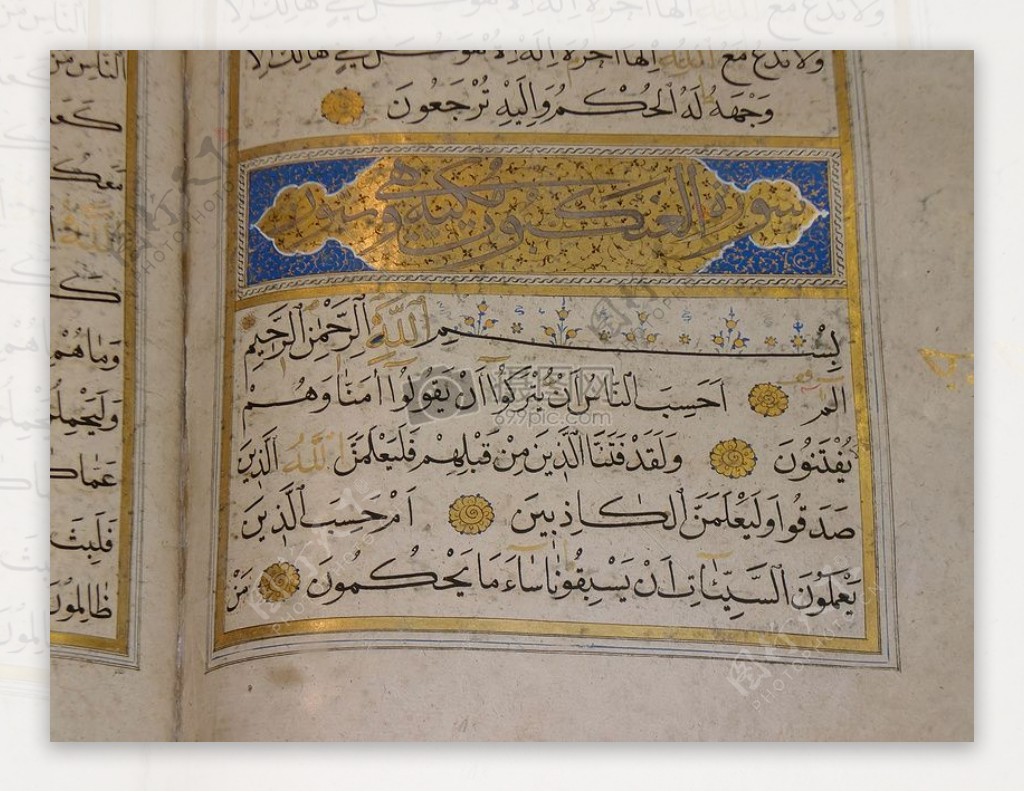 ولا تدع مع الله إلها آخر لا إله إلا هو كل شيء هالك إلا
وَجْهَهُ لَهُ الْحُكْمُ وَإِلَيْهِ تُرْجَعُونَ
سورة العنكبوت مكية وهي
بِسْمِ اللَّهِ الرَّحْمٰنِ الرَّحِيمِ
الم اَحَسِبَ النَّاسُ اَنْ يُتْرَكُوا اَنْ يَقُولُوا اٰمَنَّا وَهُمْ
يُفْتَنُونَ وَلَقَدْ فَتَنَّا الَّذِينَ مِنْ قَبْلِهِمْ فَلَيَعْلَمَنَّ اللَّهُ الَّذِينَ
صَدَقُوا وَلَيَعْلَمَنَّ الْكَاذِبِينَ اَمْ حَسِبَ الَّذِينَ
يَعْمَلُونَ السَّيِّئَاتِ اَنْ يَسْبِقُونَا سَاءَ مَا يَحْكُمُونَ مَنْ
الناس من
معكم
الله
وَمَا هُمْ
فَلَبِثَ
ظَالِمُونَ
摄图网
699pic.com